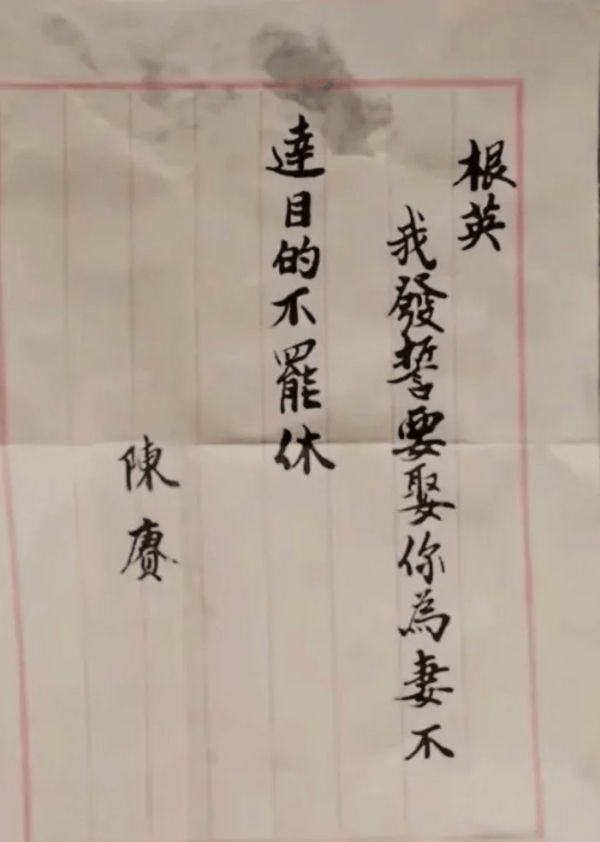 根英
我發誓要娶你為妻不
達目的不罷休
陳賡